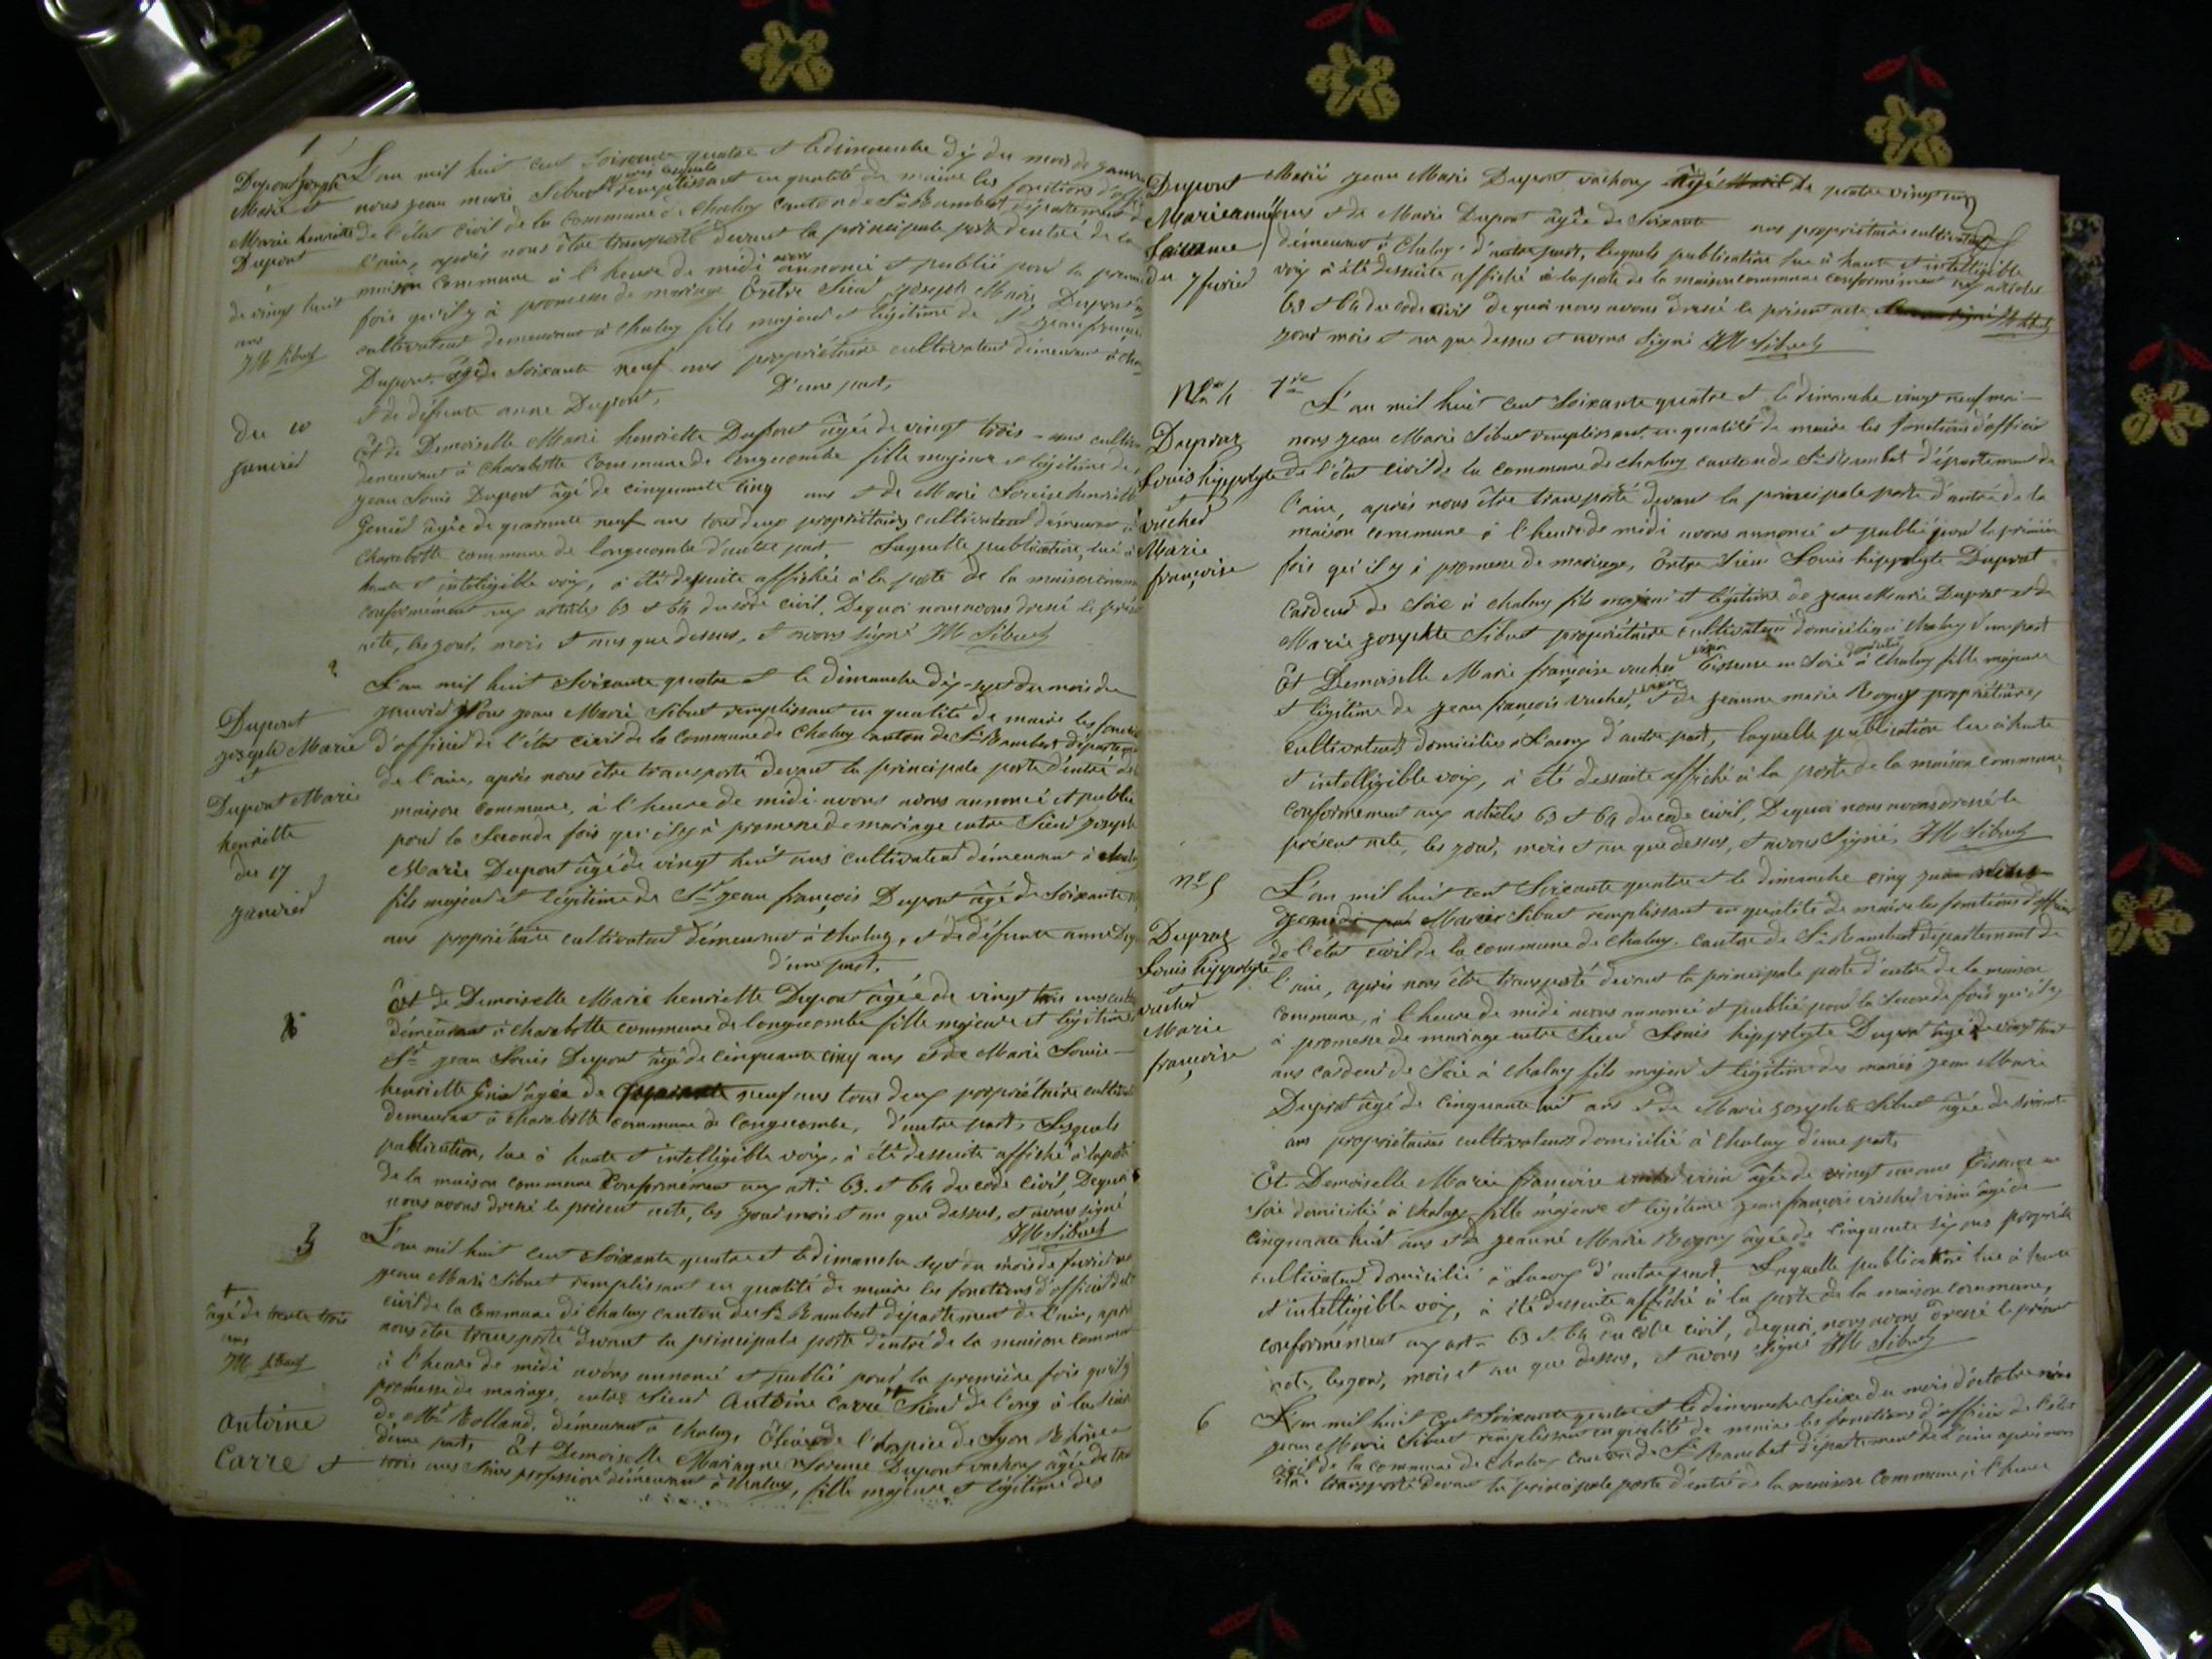 1
Dupont joseph
Marie et
Marie henriette
Dupont
de vingt huit
ans
JM Sibuet
du 10
janvier
L'an mil huit cent soixante quatre et le dimanche dix du mois de janvier
nous jean marie Sibuet remplissant en qualité de maire les fonctions d'offi
de l'état civil de la commune de Chaley canton de St Rambert, département de
l'ain, après nous être transporté devant la principale porte d'entrée de la
maison commune à l'heure de midi avons annoncé et publié pour la premiè
fois qu'il y à promesse de mariage Entre Sieur joseph Marie Dupont
cultivateur demeurant à Chaley fils majeur et légitime de Sr jean françois
Dupont âgé de soixante neuf ans propriétaire cultivateur démeurant à Cha
et de défunte anne Dupont, D'une part,
Et de Demoiselle Marie henriette Dupont âgée de vingt trois ans cultiv
demeurant à Charabotte Commune de Longecombe fille majeure et légitime de
jean Louis Dupont âgé de cinquante cinq ans et de Marie Louise henriette
âgée de quarante neuf ans tous deux propriétaires cultivateurs démeurant à
Charabotte commune de longecombe d'autre part, Laquelle publication, lue à
haute et inteligible voix, à été dessuite affichée à la porte de la maison comm
conformément aux articles 63 et 64 du code civil, Dequoi nous avons dressé le prés
acte, les jour, mois et ans que dessus, et avons signé JM Sibuet
2
Dupont
joseph Marie
et
Dupont Marie
henriette
du 17
janvier
L'an mil huit soixante quatre et le dimanche dix-sept du mois de
janvier Nous jean Marie Sibuet remplissant en qualité de maire les foncti
d'officier de l'état civil de la Commune de Chaley canton de St Rambert départeme
de l'ain, après nous être transporté devant la principale porte d'entrée de la
maison commune, à l'heure de midi avons avons annoncé et publié
pour la seconde fois qu'il y à promesse de mariage entre Sieur joseph
Marie Dupont âgé de vingt huit ans cultivateur démeurant à chaley
fils majeur et légitime de Sr jean françois Dupont âgé de soixante n
ans propriétaire cultivateur démeurant à Chaley, et de défunte anne Dup
d'une part,
Et de Demoiselle Marie henriette Dupont âgée de vingt trois ans cult
démeurant à charabotte commune de longecombe fille majeure et légitime
Sr jean Louis Dupont âgé de cinquante cinq ans et de Marie Louise
henriette âgée de quarante neuf ans tous deux propriétaire cultiva
demeurant à charabotte commune de longecombe, d'autre part, Lesquels
publication, lue à haute et intelligible voix, à été dessuite affiché à la porte
de la maison commune Conformément aux art. 63. et 64 du code civil, Dequoi
nous avons dressé le présent acte, les jour mois et an que dessus, et avons signé
JM Sibuet
3
+
âgé de trente trois
ans
JM Sibuet
Antoine
Carre et
L'an mil huit cent soixante quatre et le dimanche sept du mois de fevrier nous
jean Marie Sibuet remplissant en qualité de maire les fonctions d'officier de l'
civil de la Commune de Chaley canton de St Rambert département de l'ain, après
nous être transporté devant la principale porte d'entré de la maison commune
à l'heure de midi avons annoncé et publié pour la première fois qu'il y
promesse de mariage, entre Sieur Antoine Carre + Sieur de long à la
de Mr Rolland, démeurant à Chaley, Élève de l'hospice de Lyon Rhône
d'une part, Et Demoiselle Marianne Dupont vachoux âgée de
trois ans sans profession démeurant à Chaley, fille majeure et légitime des
Dupont
Marieanne
du 7 fevrier
Mariés jean Marie Dupont vachoux âgé de quatre vingt un
ans et de Marie Dupont âgée de soixante ans propriétaires cultivateurs
démeurant à Chaley d'autre part, lesquels publication lue à haute et intelligible
voix à été dessuite affiché à la porte de la maison commune conformément aux articles
63 et 64 du code civil de quoi nous avons dressé le présent acte
jour mois et an que dessus et avons signé JM Sibuet
No 4
Dupraz
Louis hippolyte
et
vuched
Marie
françoise
1re
L'an mil huit cent soixante quatre et le dimanche vingt neuf mai
nous jean Marie Sibuet remplissant en qualité de maire les fonctions d'officier
de l'état civil de la commune de chaley canton de St Rambert département de
l'ain, après nous être transporté devant la principale porte d'entrée de la
maison commune à l'heure de midi avons annoncé et publié pour la première
fois qu'il y à promesse de mariage, Entre Sieur Louis hippolyte Duprat
Cardeur de soie à chaley fils majeur et légitime de jean Marie Duprat et de
Marie josephte Sibuet propriétaire cultivateur domiciliés à Chaley d'une part
Et Demoiselle Marie françoise vuched Tisseuse en soie à Chaley fille majeure
et légitime de jean françois vuched, et de jeanne marie propriétaires
cultivateurs domiciliés à d'autre part, laquelle publication lue à haute
et intelligible voix, à été dessuite affiché à la porte de la maison commune,
conformément aux articles 63 et 64 du code civil, Dequoi nous avons dressé le
présent acte, les jour, mois et an que dessus, et avons signé, JM Sibuet
no 5
Dupraz
Louis hippolyte
vuched
Marie
françoise
L'an mil huit cent soixante quatre et le dimanche cinq juin
Marie Sibuet remplissant en qualité de maire les fonctions d'officier
de l'état civil de la commune de Chaley. canton de St Rambert département de
l'ain, après nous être transporté devant la principale porte d'entrée de la maison
commune, à l'heure de midi avons annoncé et publié pour la seconde fois qu'il y
à promesse de mariage entre Sieur Louis hippolyte Duprat âgé de vingt huit
ans cardeur de soie à chaley fils majeur et légitime des mariés jean Marie
Duprat âgé de cinquante huit ans et de Marie josephte Sibuet âgée de soixante
ans propriétaires cultivateurs domicilié à Chaley d'une part,
Et Demoiselle Marie françoise vuched âgée de vingt un ans Tisseuse en
soie domicilié à Chaley fille majeure et légitime jean françois vuched âgé de
cinquante huit ans et de jeanne Marie âgée de cinquante six ans propriét
cultivateurs domicilié à d'autre part, Laquelle publication lue à haute
et intelligible voix, à été dessuite affiché à la porte de la maison commune,
conformément aux art. 63 et 64 du code civil, dequoi nous avons dressé le présent
acte, les jour, mois et an que dessus, et avons signé JM Sibuet
6
L'an mil huit cent soixante quatre et le dimanche seize du mois d'octobre nous
jean Marie Sibuet remplissant en qualité de maire les fonctions d'officier de l'état
civil de la commune de Chaley canton de St Rambert département de l'ain après nous
être transporté devant la principale porte d'entré de la maison commune, à l'heure